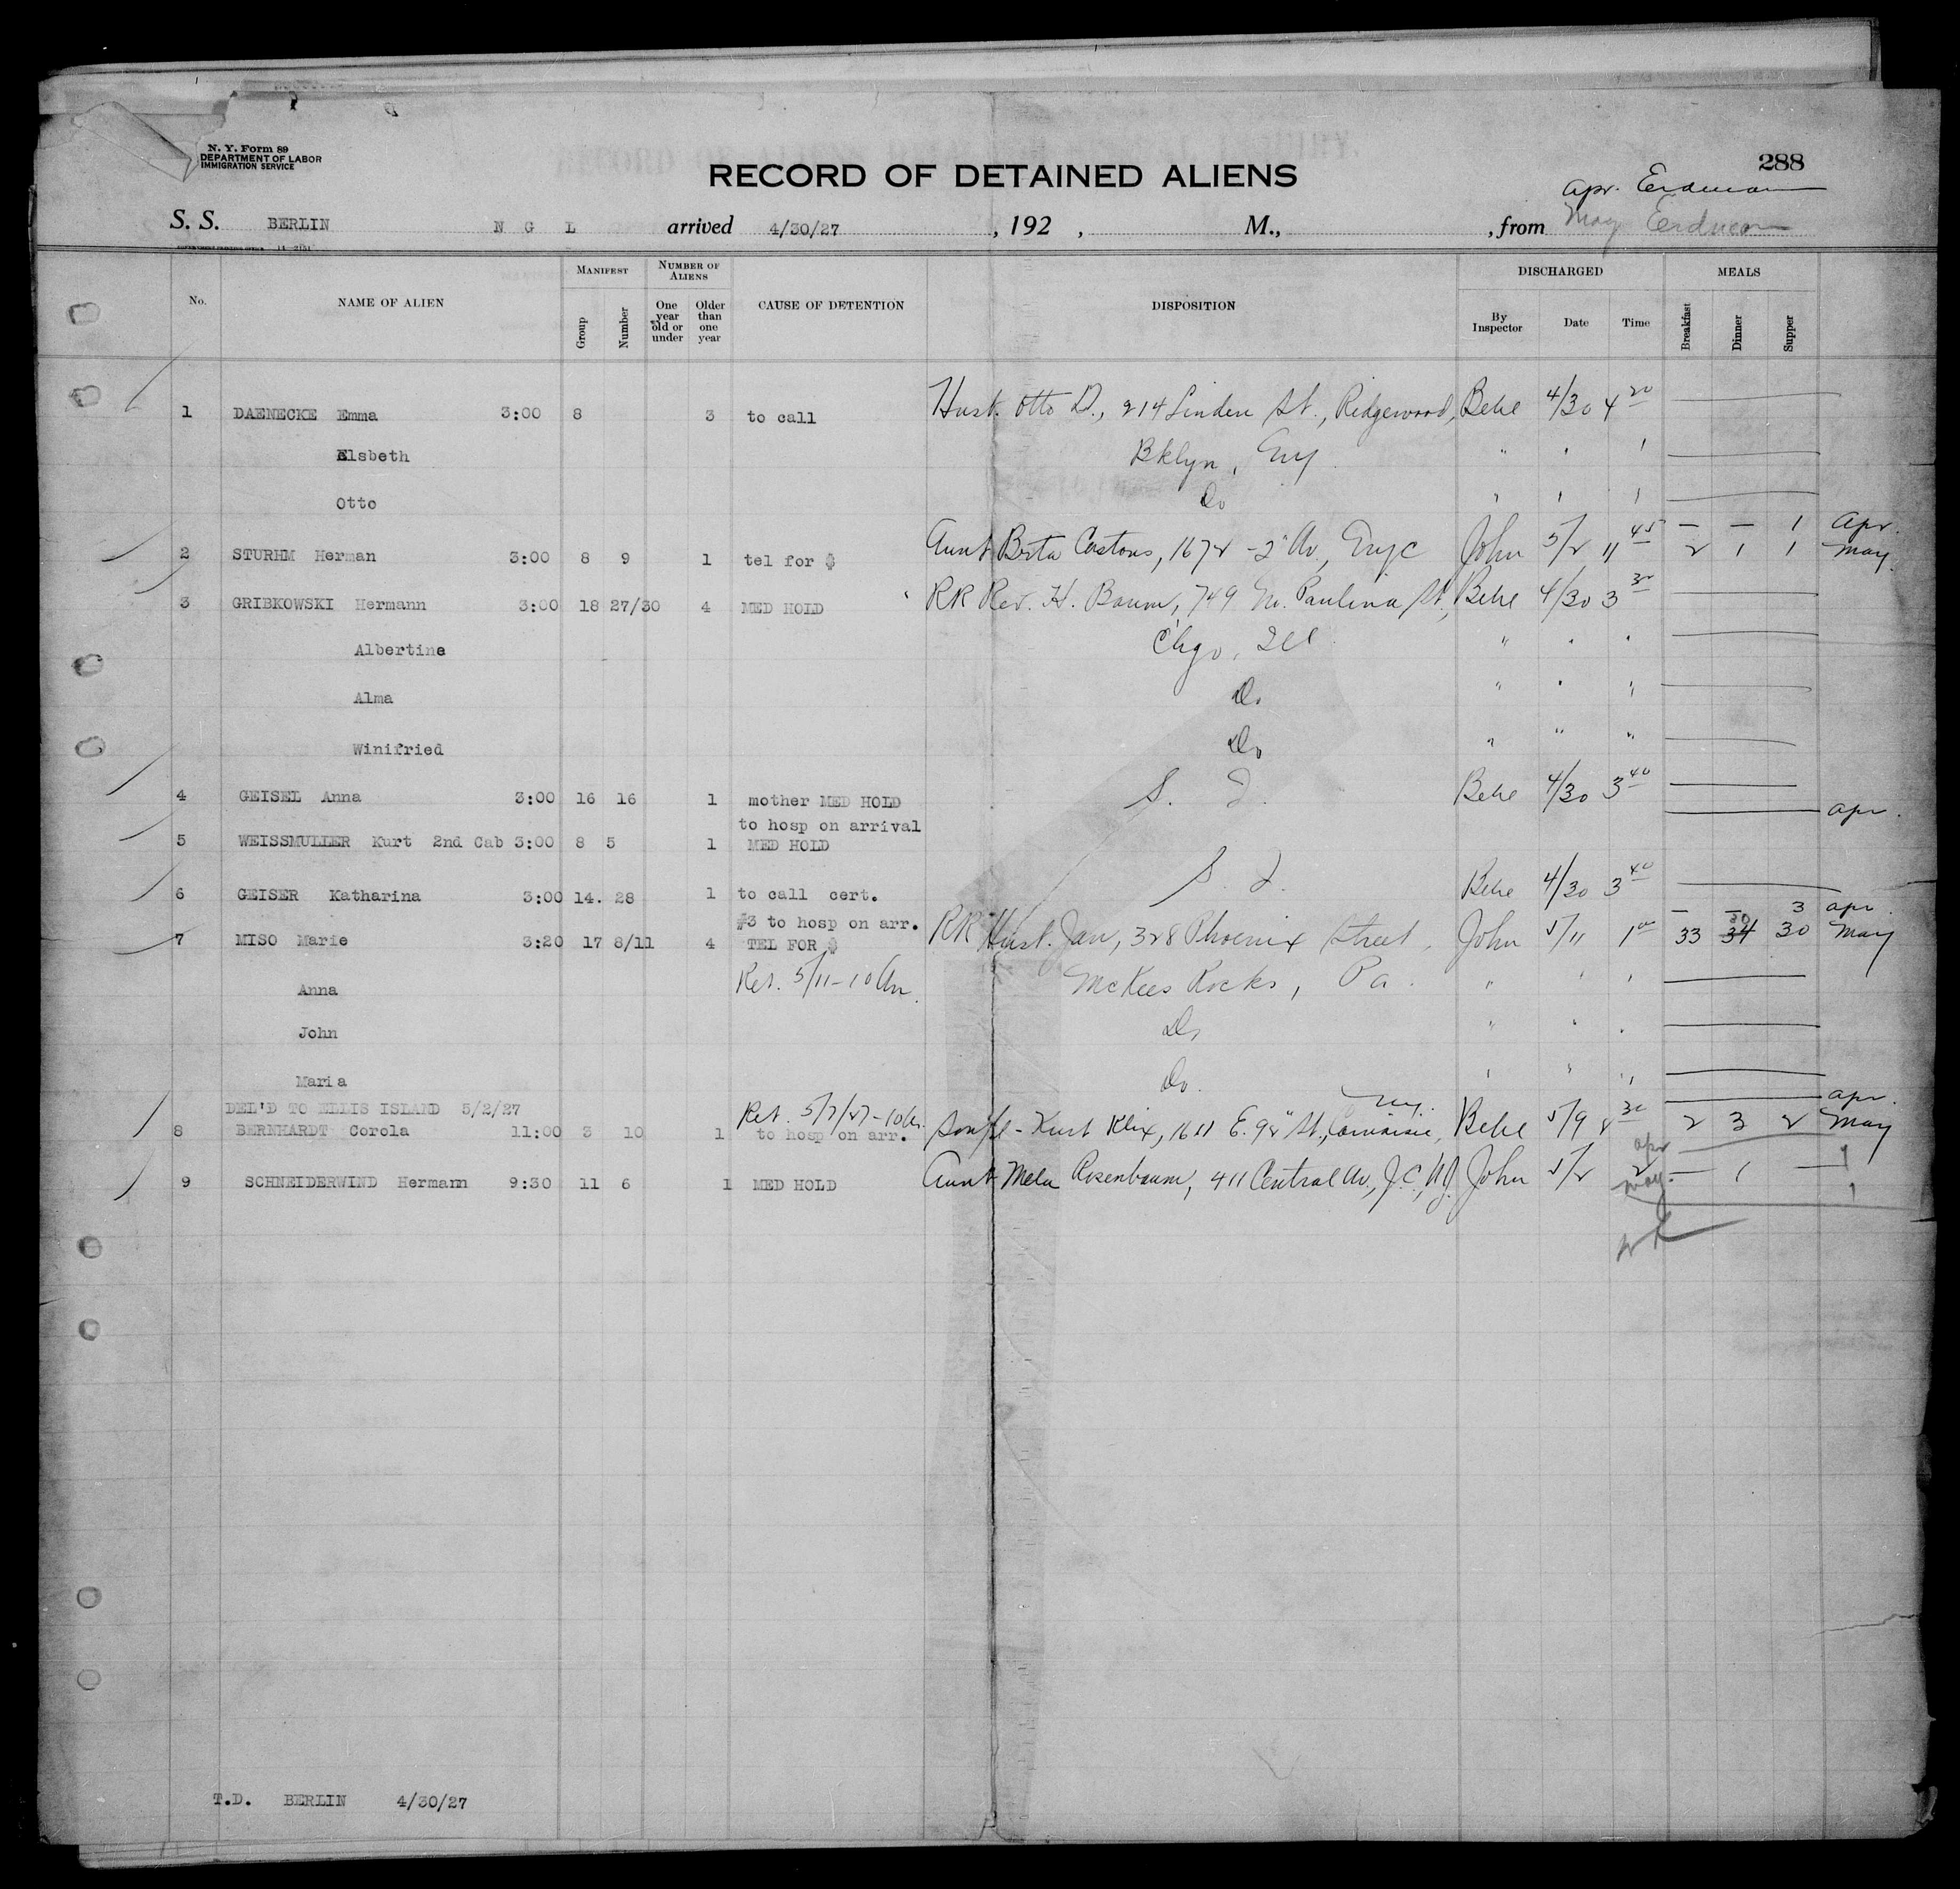 N. Y. Form 89
DEPARTMENT OF LABOR
IMMIGRATION SERVICE
288
RECORD OF DETAINED ALIENS
Apr. Erdman
S. S. BERLIN N G L arrived 4/30/27 , 192 , M., , from May Erdman
No. NAME OF ALIEN MANIFEST Group Number NUMBER OF ALIENS One year old or under Older than one year CAUSE OF DETENTION DISPOSITION DISCHARGED By Inspector Date Time MEALS Breakfast Dinner Supper
1 DAENECKE Emma 3:00 8 3 to call Husb. Otto D., 214 Linden St., Ridgewood, Behe 4/30 4 20
Elsbeth Bklyn, " " "
Otto Do " " "
— — 1 Apr.
2 STURHM Herman 3:00 8 9 1 tel for $ Aunt Berta Castons, 1672 - 2" Av., NYC John 5/2 11 45 2 1 1 May
3 GRIBKOWSKI Hermann 3:00 18 27/30 4 MED HOLD RR Rev. H. Baum, 749 No. Paulina St., Behe 4/30 3 30
Albertine Chgo, Ill " " "
Alma Do " " "
Winifried Do " " "
4 GEISEL Anna 3:00 16 16 1 mother MED HOLD S. I. Behe 4/30 3 40
to hosp on arrival Apr.
5 WEISSMULLER Kurt 2nd Cab 3:00 8 5 1 MED HOLD
6 GEISER Katharina 3:00 14. 28 1 to call cert. S. I. Behe 4/30 3 40
#3 to hosp on arr. — — 3 Apr.
7 MISO Marie 3:20 17 8/11 4 TEL FOR $ RR Husb. Jan, 328 Phoenix Street, John 5/11 1 00 33 34 30 30 May
Anna Ret. 5/11 - 10 Am. McKees Rocks, Pa. " " "
John Do " " "
Maria Do. " " "
DEL'D TO ELLIS ISLAND 5/2/27 Ret. 5/7/27 - 10 Am. NY. Apr.
8 BERNHARDT Corola 11:00 3 10 1 to hosp on arr. Kurt Klix, 1611 E. 92" St., Canarsie, Behe 5/9 2 30 2 3 2 May
Apr — — 1
9 SCHNEIDERWIND Hermann 9:30 11 6 1 MED HOLD Aunt Mela Rosenbaum, 411 Central Av., J.C., NJ. John 5/2 2
May. — 1 1
T.D. BERLIN 4/30/27